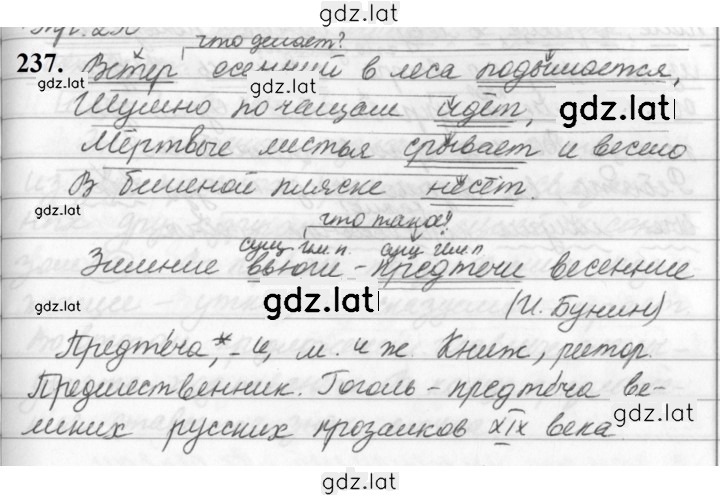 gdz.lat
Упр. 237
что делает?
237. Ветер осенний в леса подымается,
gdz.lat
gdz.lat
gdz.lat
Шумно по чащам идёт,
gdz.lat
Мёртвые листья срывает и весело
В бешеной пляске несёт.
gdz.lat
что такое?
сущ. им. п. сущ. им. п.
Зимние вьюги – предтечи весенние
gdz.lat
gdz.lat
(И. Бунин)
Предтеча,* -и, м. и ж. Книж., ритор.
Предшественник. Гоголь – предтеча ве-
gdz.lat
ликих русских прозаиков XIX века.
gdz.lat